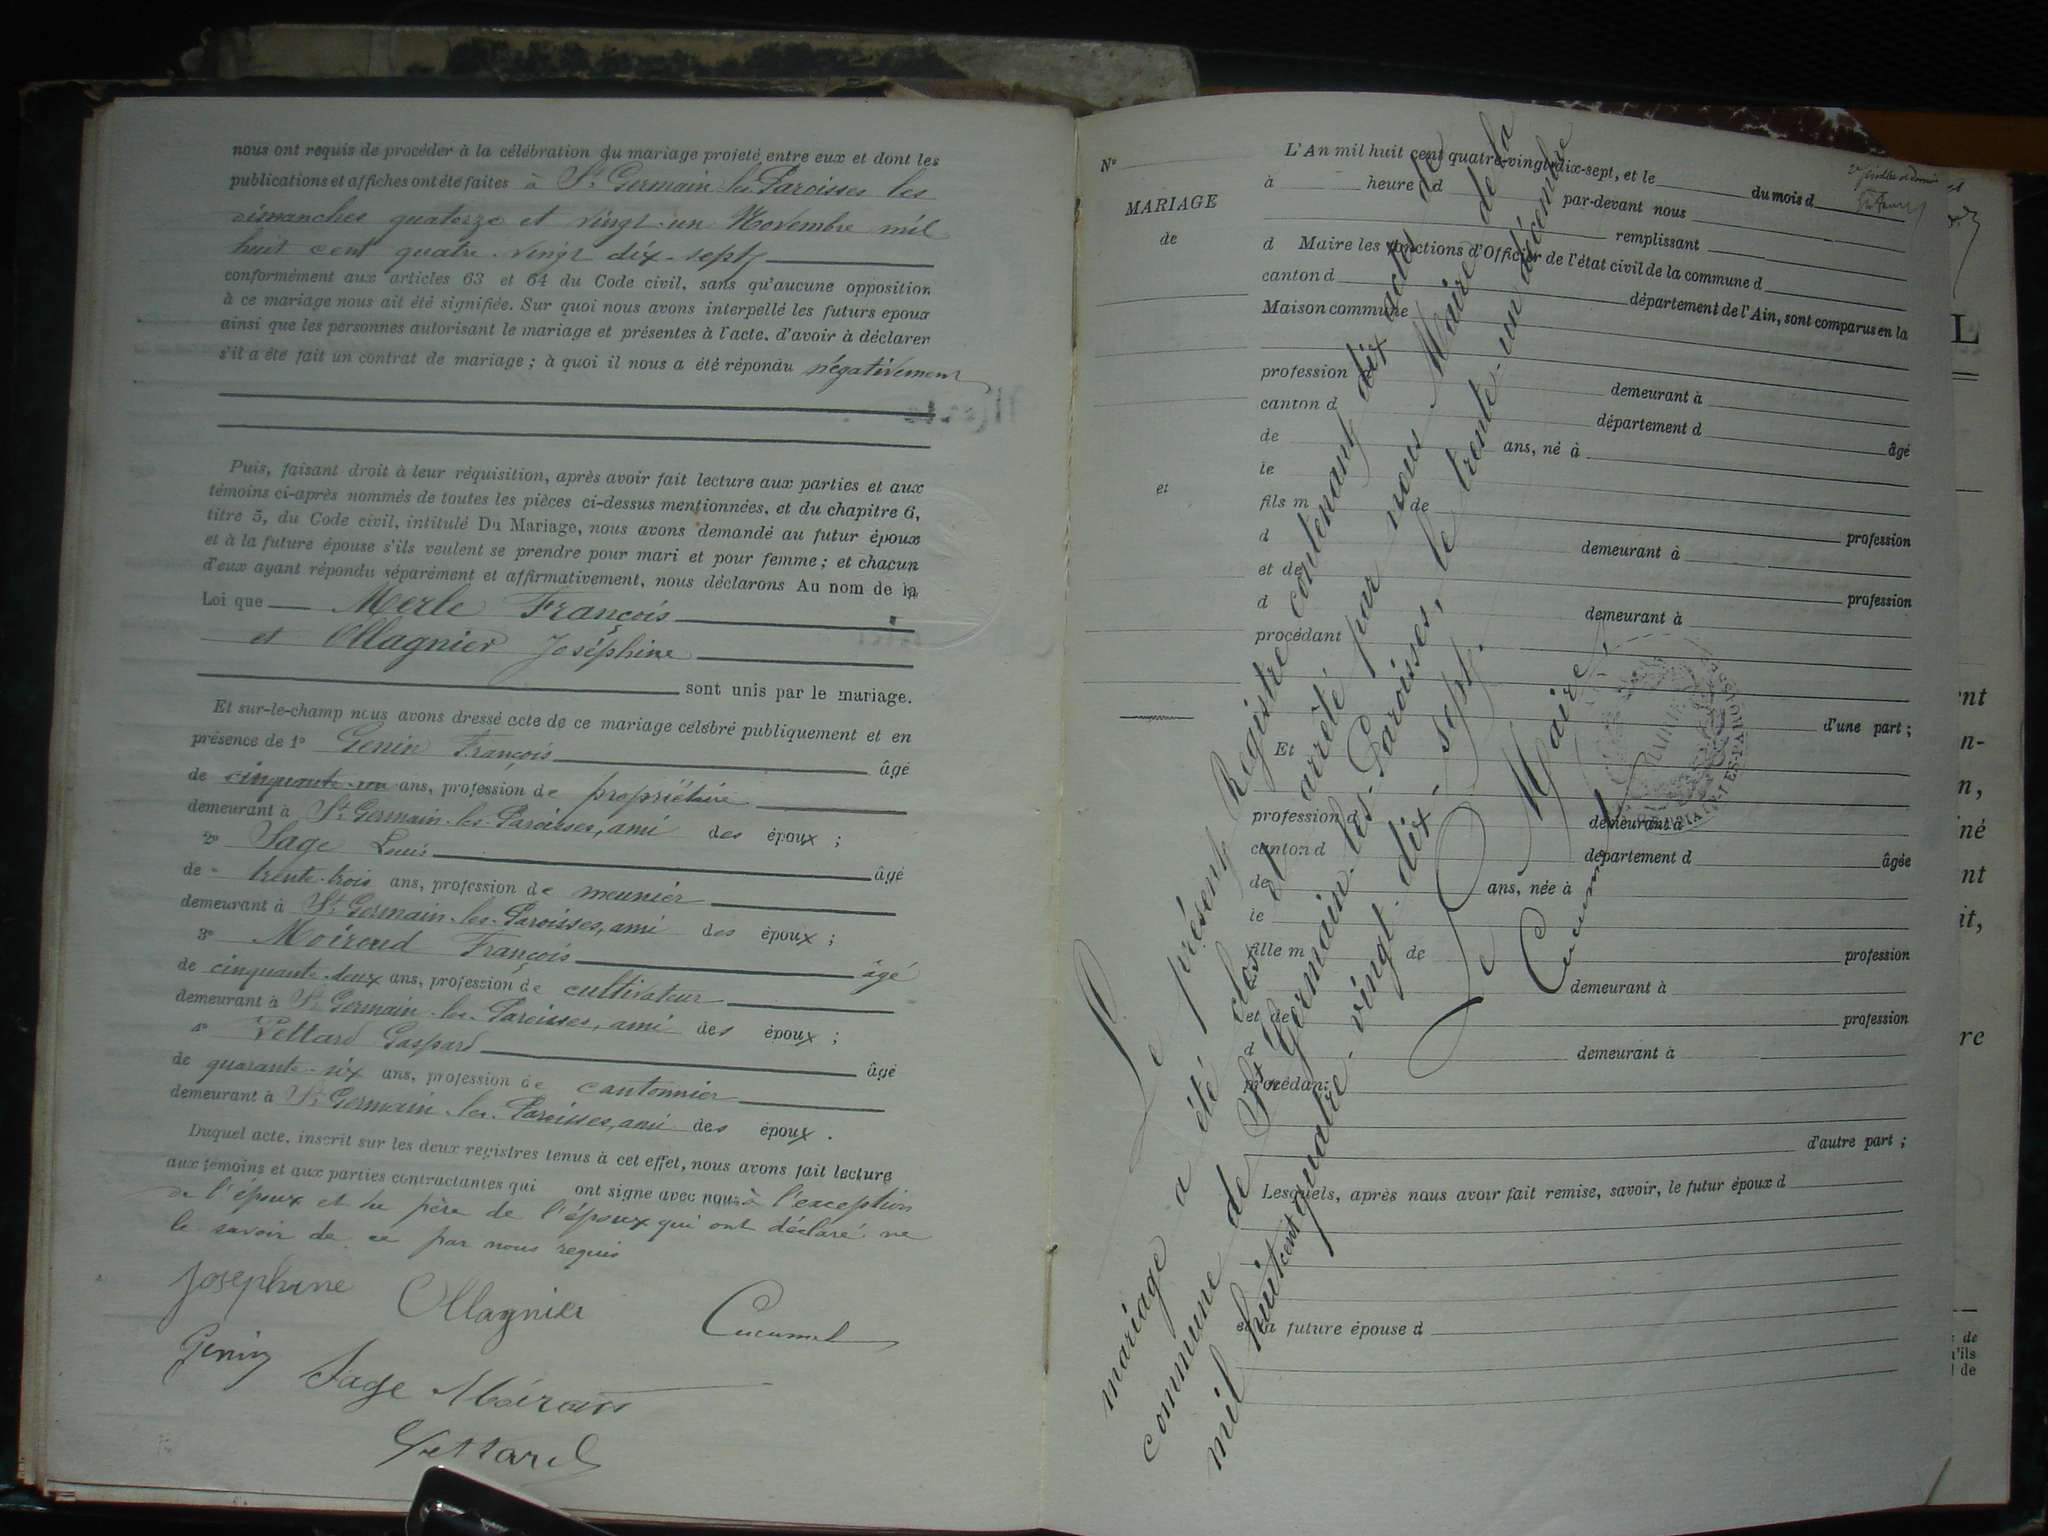 nous ont requis de procéder à la célébration du mariage projeté entre eux et dont les
publications et affiches ont été faites à St Germain les Paroisses les
dimanches quatorze et vingt-un Novembre mil
huit cent quatre-vingt dix-sept
conformément aux articles 63 et 64 du Code civil, sans qu'aucune opposition
à ce mariage nous ait été signifiée. Sur quoi nous avons interpellé les futurs epoux
ainsi que les personnes autorisant le mariage et présentes à l'acte, d'avoir à déclarer
s'il a été fait un contrat de mariage ; à quoi il nous a été répondu négativement
Puis, faisant droit à leur réquisition, après avoir fait lecture aux parties et aux
témoins ci-après nommés de toutes les pièces ci-dessus mentionnées, et du chapitre 6,
titre 5, du Code civil, intitulé Du Mariage, nous avons demandé au futur époux
et à la future épouse s'ils veulent se prendre pour mari et pour femme ; et chacun
d'eux ayant répondu séparément et affirmativement, nous déclarons Au nom de la
Loi que Merle François
et Ollagnier Joséphine
sont unis par le mariage.
Et sur-le-champ nous avons dressé acte de ce mariage célébré publiquement et en
présence de 1º Genin François âgé
de cinquante-un ans, profession de propriétaire
demeurant à St Germain-les-Paroisses, ami des époux ;
2º Sage Louis âgé
de trente-trois ans, profession de meunier
demeurant à St Germain-les-Paroisses, ami des époux ;
3º Moiroud François âgé
de cinquante-deux ans, profession de cultivateur
demeurant à St Germain-les-Paroisses, ami des époux ;
4º Pettard Gaspard âgé
de quarante-six ans, profession de cantonnier
demeurant à St Germain-les-Paroisses, ami des époux.
Duquel acte, inscrit sur les deux registres tenus à cet effet, nous avons fait lecture
aux témoins et aux parties contractantes qui ont signé avec nous à l'exception
de l'époux et du père de l'époux qui ont déclaré ne
le savoir de ce par nous requis
Josephine Ollagnier Cucumel
Genin Sage Moiroud
Pettard
Nº
MARIAGE
de
et
L'An mil huit cent quatre-vingt-dix-sept, et le du mois d
à heure d par-devant nous
remplissant
d Maire les fonctions d'Officier de l'état civil de la commune d
canton d département de l'Ain, sont comparus en la
Maison commune
profession demeurant à
canton d département d
de ans, né à âgé
le
fils m de
d demeurant à profession
et de
d demeurant à profession
procédant
d'une part ;
Et
profession d demeurant à
canton d département d âgée
de ans, née à
le
fille m de profession
d demeurant à
et de profession
d demeurant à
procédant
d'autre part ;
Lesquels, après nous avoir fait remise, savoir, le futur époux d
et la future épouse d
Le présent Registre contenant dix actes de
mariage a été clos et arrêté par nous Maire de la
commune de St Germain-les-Paroisses, le trente-un décembre
mil huit cent quatre-vingt-dix-sept.
Le Maire,
Cucumel
MAIRIE
L
nt
n-
n,
né
nt
it,
re
de
u'ils
de